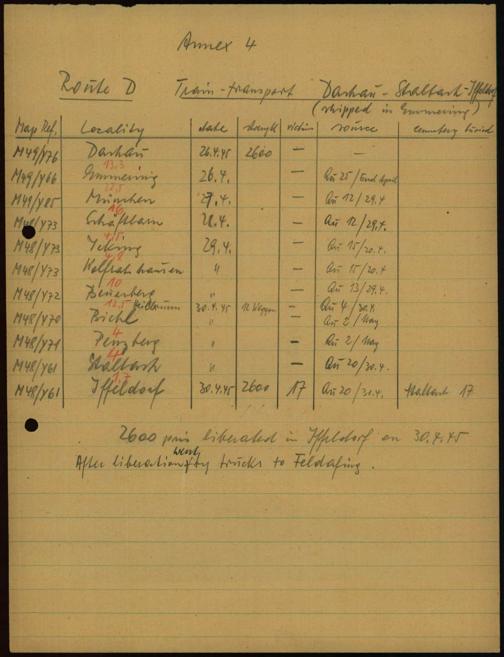 Annex 4
Route D Train-transport Dachau - Staltach-Iffeldorf
(shipped in Emmering)
Map Ref. Locality date strength victims source cemetery buried
M49/Y76 Dachau 26.4.45 2600 — —
13,3
M49/Y66 Emmering 26.4. — AU 25/End April
M49/Y85 München 27.4. — AU 12/29.4.
16
M48/Y73 Schäftlarn 28.4. — AU 12/29.4.
4,5
M48/Y73 Icking 29.4. — AU 15/20.4.
4,8
M48/Y73 Wolfratshausen " — AU 15/20.4
10
M48/Y72 Beuerberg — AU 13/29.4.
12,5
M48/Y70 Bichl 30.4.45 — AU 4/30.4.
" AU 2/May
4
M48/Y71 Penzberg " — AU 2/May
4
M48/Y61 Staltach " — AU 20/30.4.
1,7
M48/Y61 Iffeldorf 30.4.45 2600 17 AU 20/30.4. Staltach 17
2600 pris liberated in Iffeldorf on 30.4.45
went
After liberation by trucks to Feldafing.